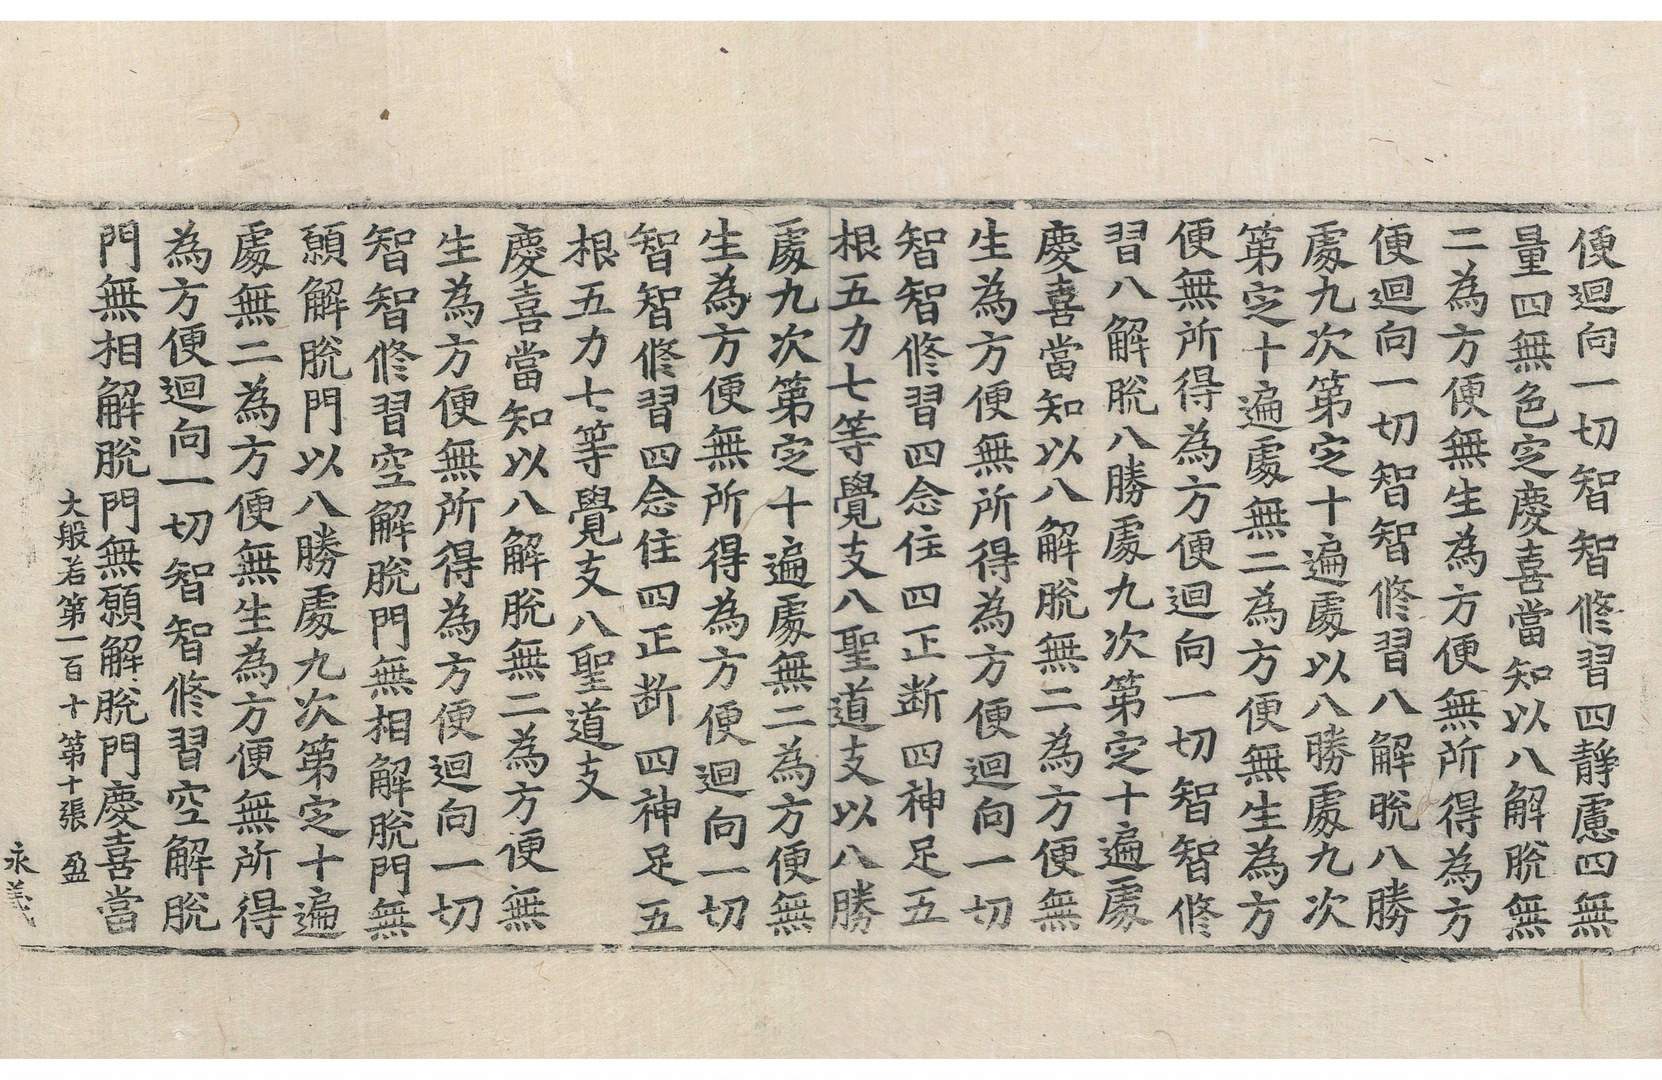 便迴向一切智智修習四靜慮四無
量四無色定慶喜當知以八解脫無
二為方便無生為方便無所得為方
便迴向一切智智修習八解脫八勝
處九次第定十遍處以八勝處九次
第定十遍處無二為方便無生為方
便無所得為方便迴向一切智智修
習八解脫八勝處九次第定十遍處
慶喜當知以八解脫無二為方便無
生為方便無所得為方便迴向一切
智智修習四念住四正斷四神足五
根五力七等覺支八聖道支以八勝
處九次第定十遍處無二為方便無
生為方便無所得為方便迴向一切
智智修習四念住四正斷四神足五
根五力七等覺支八聖道支
慶喜當知以八解脫無二為方便無
生為方便無所得為方便迴向一切
智智修習空解脫門無相解脫門無
願解脫門以八勝處九次第定十遍
處無二為方便無生為方便無所得
為方便迴向一切智智修習空解脫
門無相解脫門無願解脫門慶喜當
大般若第一百十第十張 盈
永義